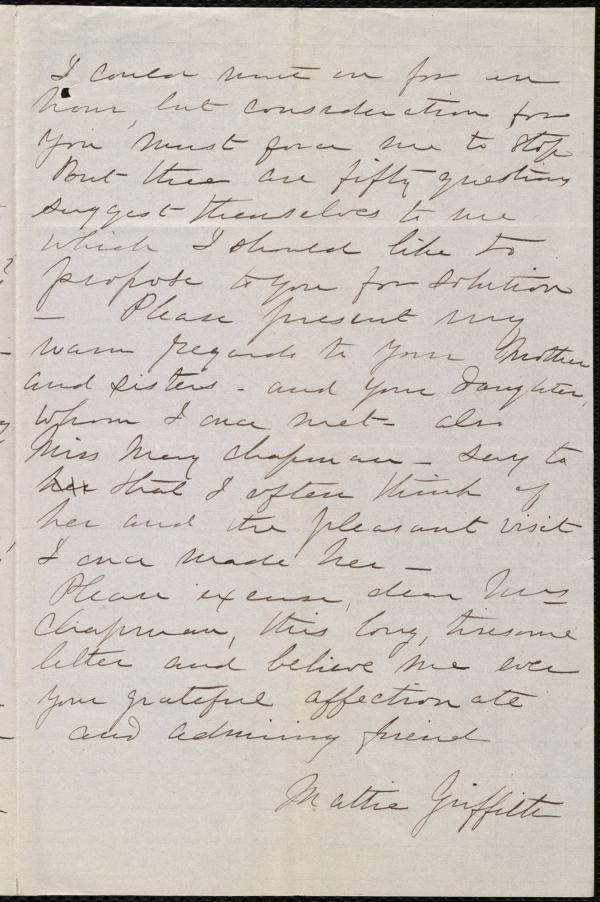 I could write on for an
hour, but consideration for
you must force me to stop
But there are fifty questions
suggest themselves to me
which I should like to
propose to you for solution
– Please present my
warm regards to your Mother
and sisters - and your daughter,
whom I once met - also
Miss Mary Chapman – say to
her that I often think of
her and the pleasant visit
I once made her –
Please excuse, dear Mrs
Chapman, this long, tiresome
letter and believe me ever
your grateful affectionate
and admiring friend
Mattie Griffith